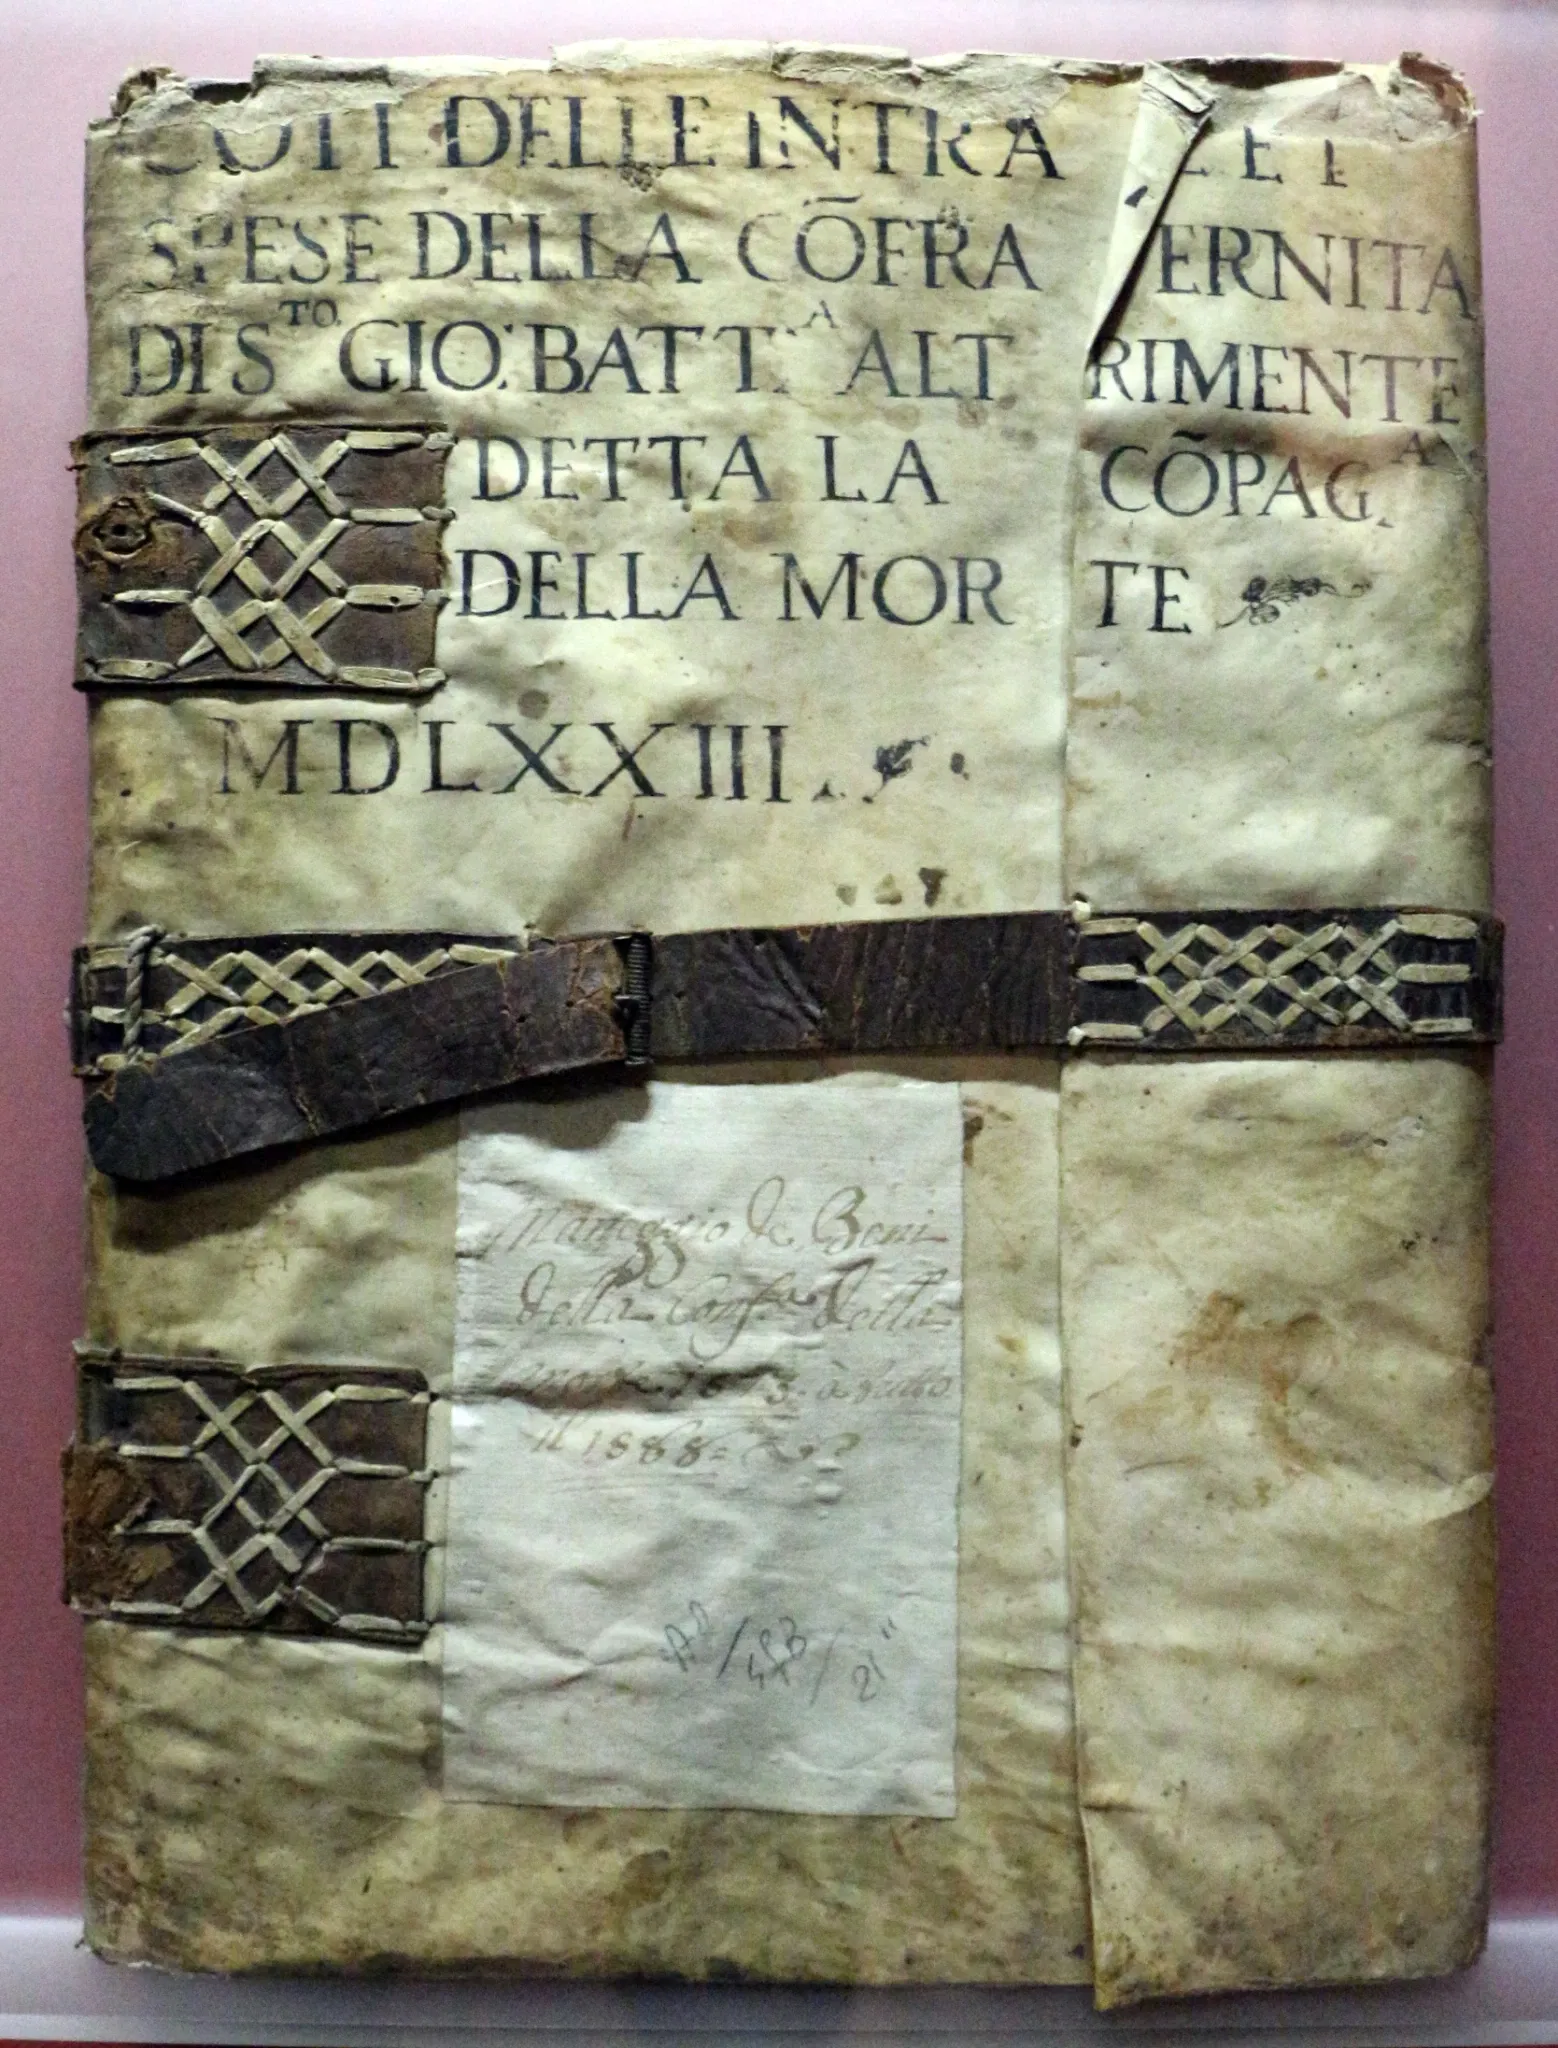 COTI DELLE INTRA E ET
SPESE DELLA CÕFRA ERNITA
DI S.TO GIO: BATT.A ALT RIMENTE
DETTA LA CÕPAG.A
DELLA MOR TE
MDLXXIII.
Maneggio de Beni
della Conf.a della
morte à tutto
il 1888
21"